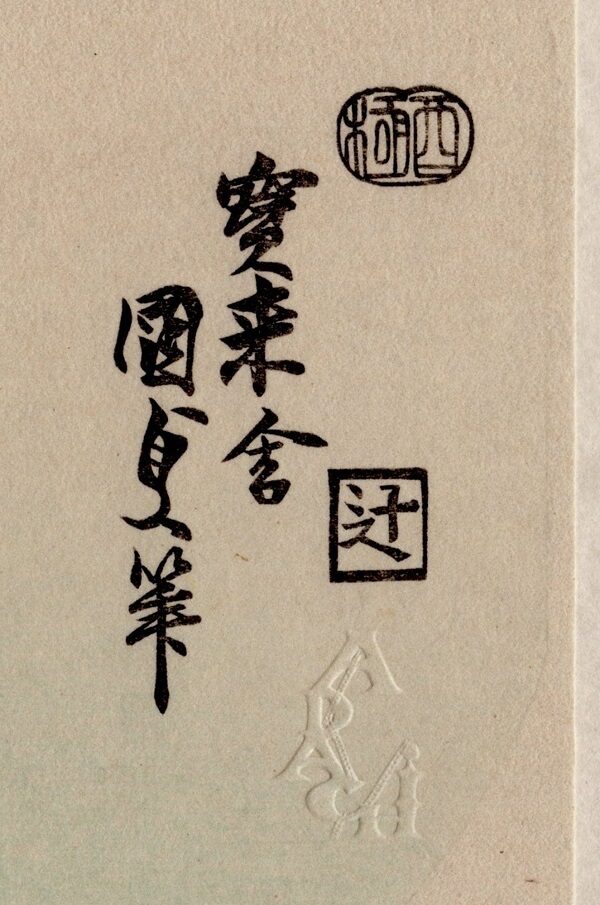 酉極
寳来舎
國貞筆
辻